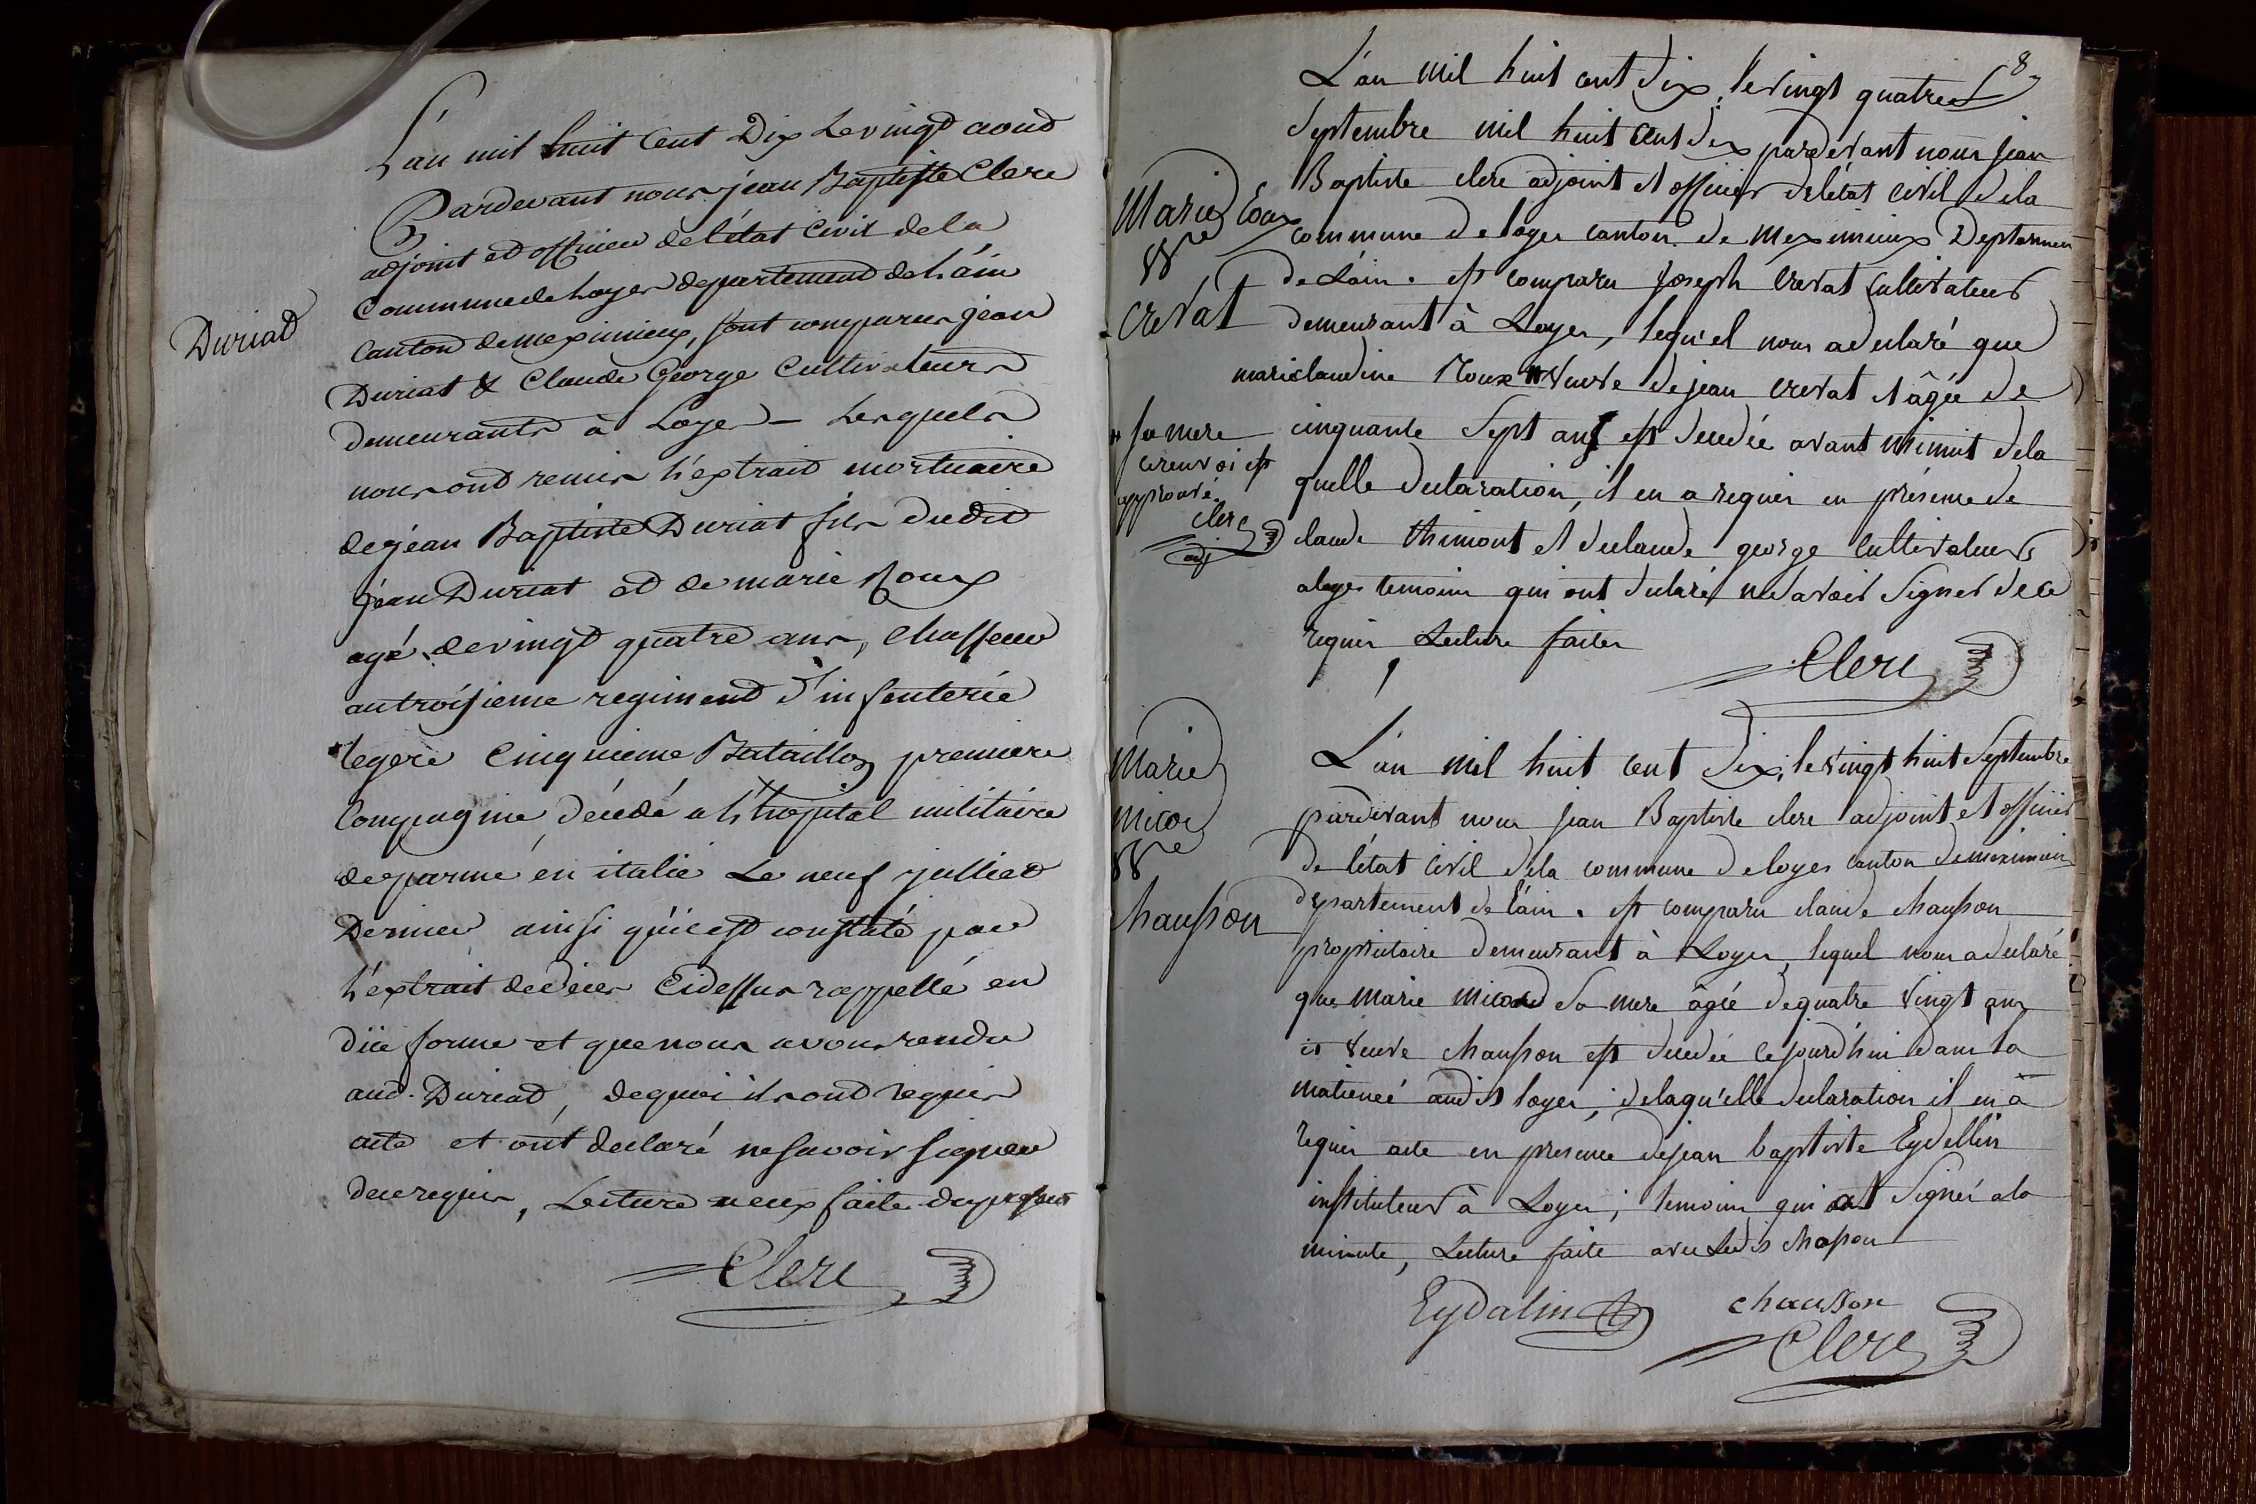 Duriat
L'an mil huit cent Dix Le vingt aout
Pardevant nous jean Baptiste Clerc
adjoint et officier de l'état Civil de la
Commune de Loyes departement de L'ain
Canton de meximieux, sont comparus jean
Duriat & Claude George Cultivateurs
demeurants à Loyes – Lesquels
nous ont remis L'extrait mortuaire
de jean Baptiste Duriat fils dudit
jean Duriat et de marie Roux
agé de vingt quatre ans, chasseur
au troisieme regiment d'infenterie
legere Cinquieme Bataillon premiere
Compagnie décédé a l'hopital militaire
de parme en italie Le neuf julliet
Dernier ainsi qu'il est constaté par
L'extrait de deces Cidessus rappellé en
düe forme et que nous avons rendu
aud. Duriat, de quoi ils ont requis
acte et ont declaré ne savoir signer
de ce requis, Lecture a eux faite du present
Clerc
8
L'an mil huit cent dix, le vingt quatre
Septembre mil huit cent dix pardevant nous jean
Baptiste clerc adjoint et officier de létat civil de la
commune de loyes canton de meximieux Departemen
de L'ain. est comparu joseph crevat cultivateur
demeurant à Loyes, lequ'el nous a declaré que
marieclaudine Roux # veuve de jean crevat et âgée de
cinquante sept ans est decedée avant minuit de la
quelle declaration, il en a requis en présence de
claude thimont et de claude george cultivateurs
a loyes temoins qui ont declaré ne savoir signer de ce
requis Lecture faites
Clerc
Marie Roux
Vve
crevat
# sa mere
ce renvoi est
approuvé
clerc
adj
L'an mil huit cent dix, le vingt huit Septembre
pardevant nous jean Baptiste clerc adjoint et officier
de létat civil de la commune de loyes canton de meximieux
departement de l'ain. est comparu claude chausson
proprietaire demeurant à Loyes, lequel nous a declaré
que marie micard sa mere âgée de quatre vingt ans
et veuve chausson est decedée cejourd'hui dans la
matieneé audit loyes; de laqu'elle declaration il en a
requis acte en presence de jean baptiste Eydellin
instituteur à Loyes; temoins qui ont signé a la
minute, Lecture faite avec Ledit chasson
Eydalin
chausson
Clerc
Marie
micoud
Vve
chausson